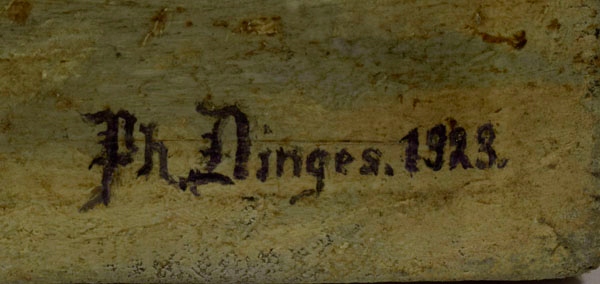 Ph. Dinges. 1923.